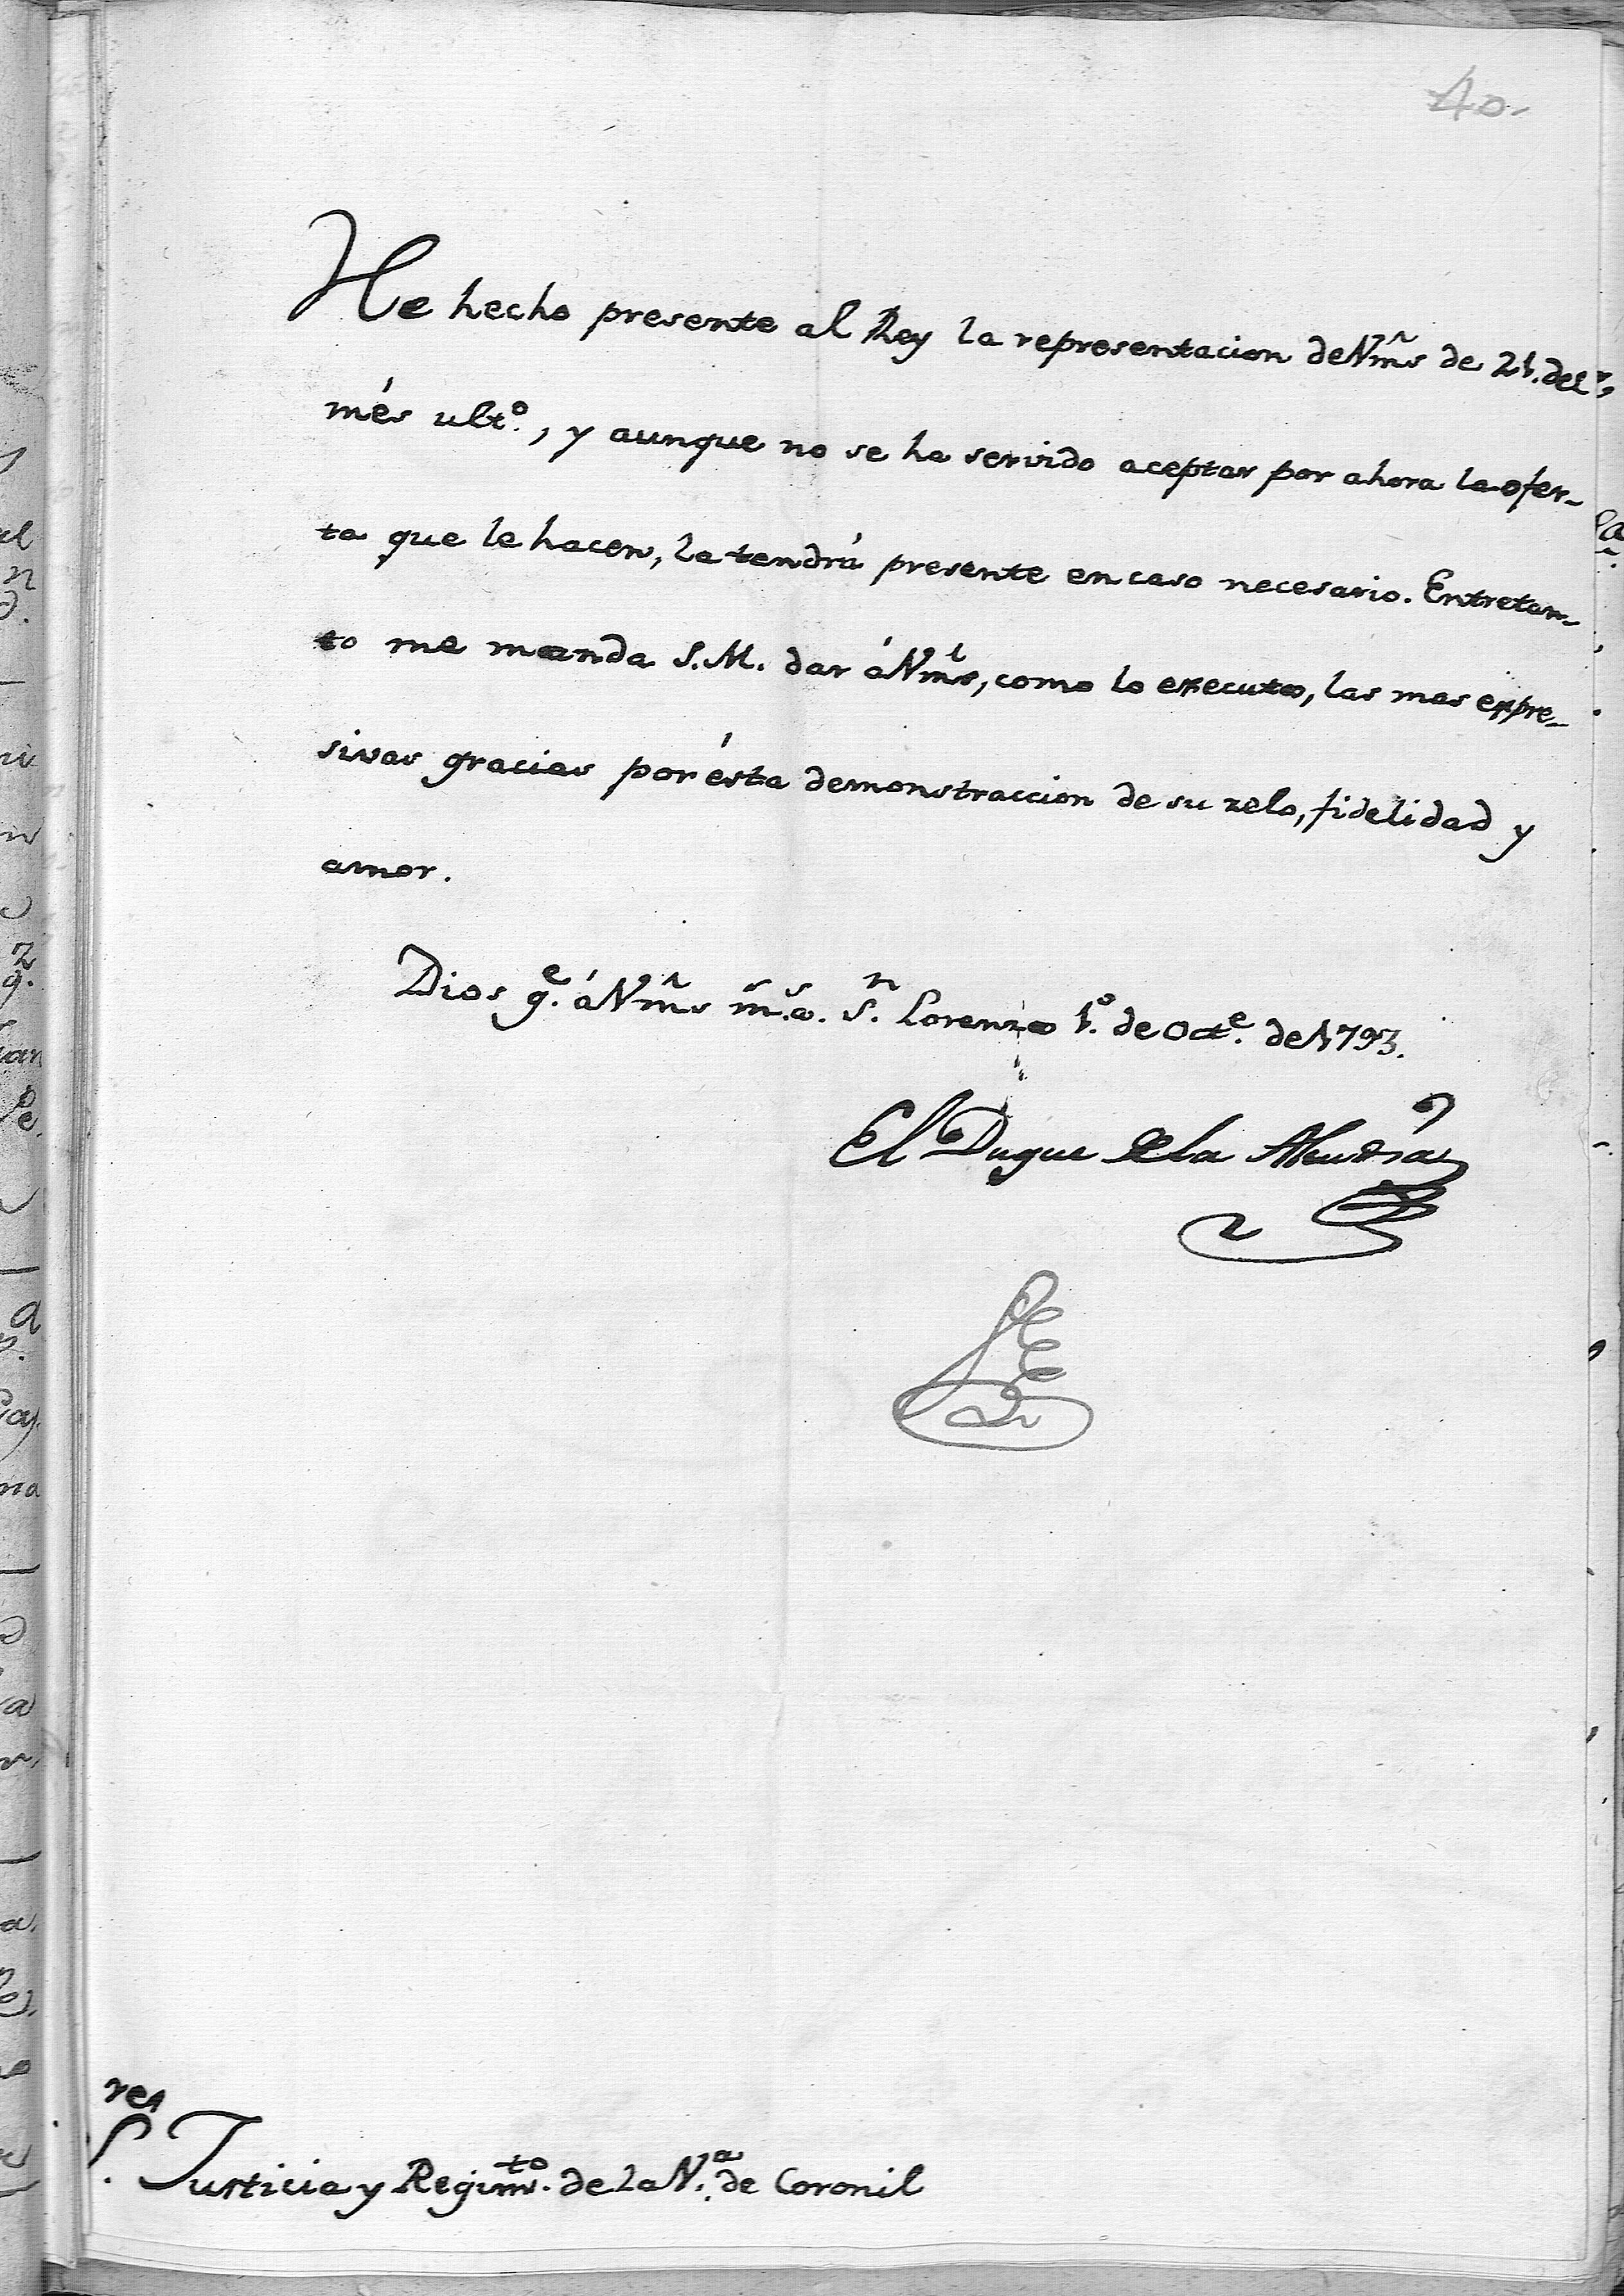 40.
He hecho presente al Rey la representacion de Vms de 21. del
més ult.º, y aunque no se ha servido aceptar por ahora la ofer-
ta que le hacen, la tendrá presente en caso necesario. Entretan-
to me manda S.M. dar á Vms, como lo executo, las mas expre-
sivas gracias por ésta demonstraccion de su zelo, fidelidad y
amor.
Dios g.e á Vms m.s a.s S.n Lorenzo 1.º de Oct.e de 1793.
El Duque de la Alcudia
S.res Justicia y Regim.to de la V.a de Coronil